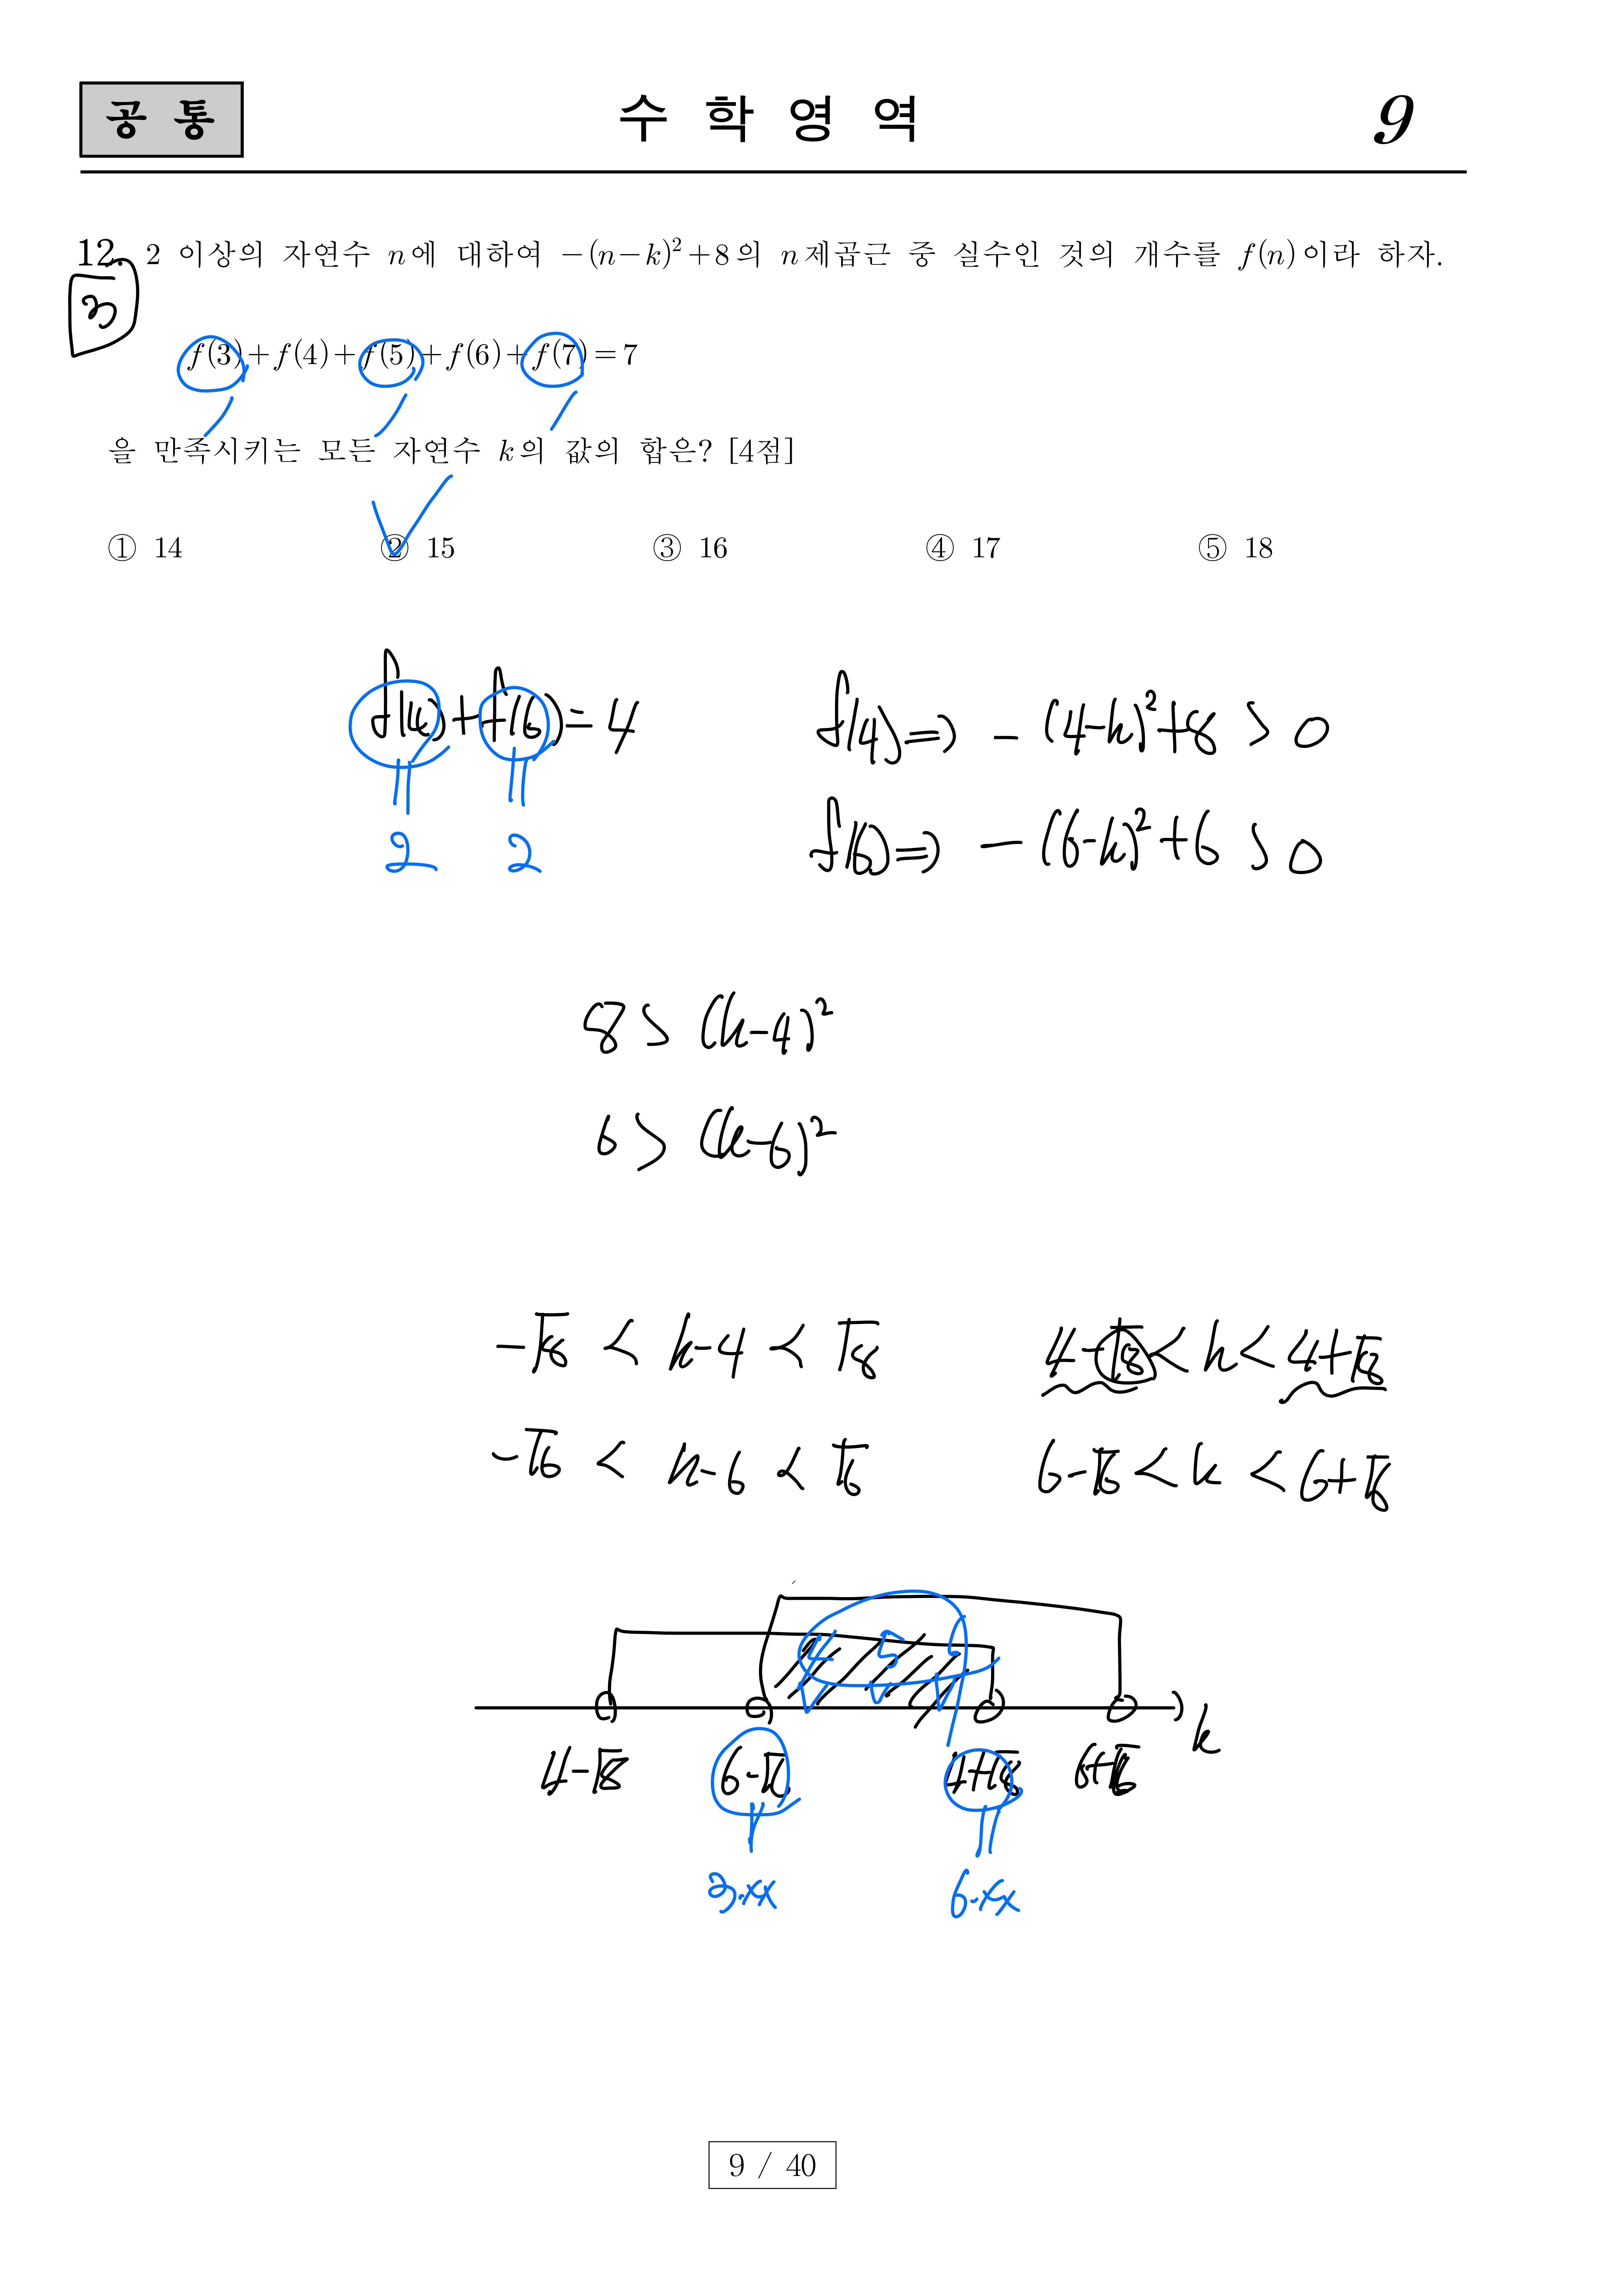 공 통
수 학 영 역
9
12. 2 이상의 자연수 n에 대하여 -(n-k)²+8의 n제곱근 중 실수인 것의 개수를 f(n)이라 하자.
3
f(3)+f(4)+f(5)+f(6)+f(7)=7
을 만족시키는 모든 자연수 k의 값의 합은? [4점]
① 14 ② 15 ③ 16 ④ 17 ⑤ 18
f(4)+f(6)=4
2 2
f(4)⇒ -(4-k)²+8 > 0
f(6)⇒ -(6-k)²+6 > 0
8 > (k-4)²
6 > (k-6)²
-√8 < k-4 < √8 4-√8 < k < 4+√8
-√6 < k-6 < √6 6-√6 < k < 6+√6
4 5
4-√8 6-√6 4+√8 6+√6 k
3.xx 6.xx
9 / 40